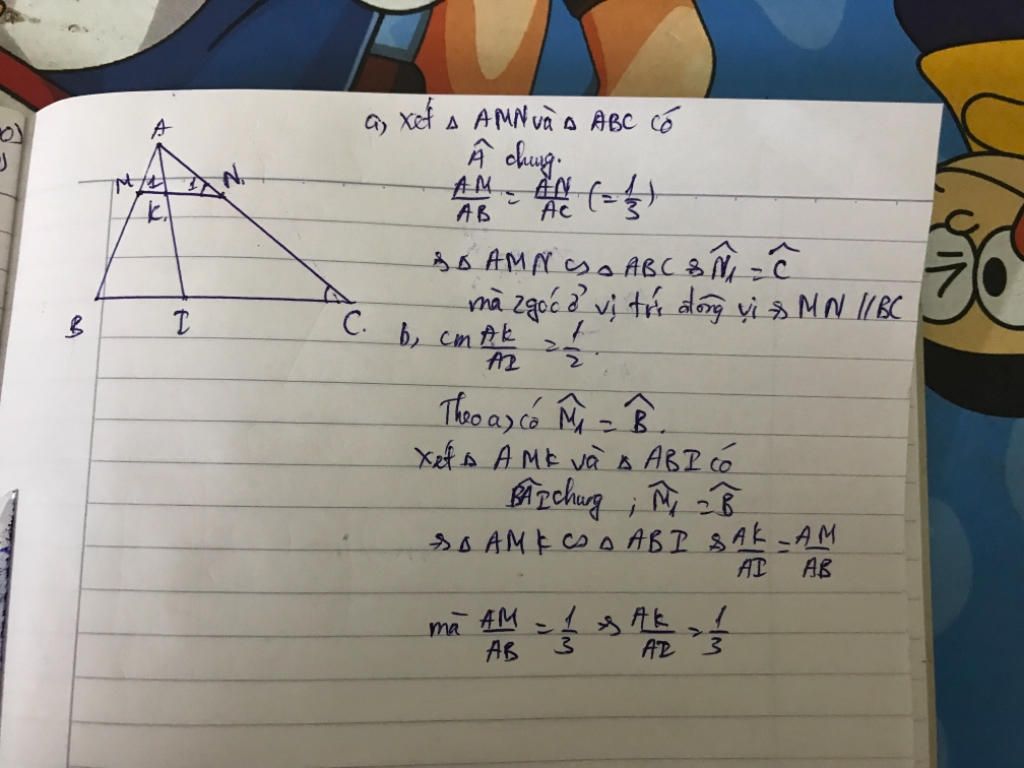 a, Xét △ AMN và △ ABC có
Â chung.
AM/AB = AN/AC (= 1/3)
⇒ △ AMN ∽ △ ABC ⇒ N̂₁ = Ĉ
mà 2 góc ở vị trí đồng vị ⇒ MN // BC
b, cm AK/AI = 1/2.
Theo a, có M̂₁ = B̂.
Xét △ AMK và △ ABI có
BÂI chung ; M̂₁ = B̂
⇒ △ AMK ∽ △ ABI ⇒ AK/AI = AM/AB
mà AM/AB = 1/3 ⇒ AK/AI = 1/3
A
M 1 1 N.
K.
B I C.